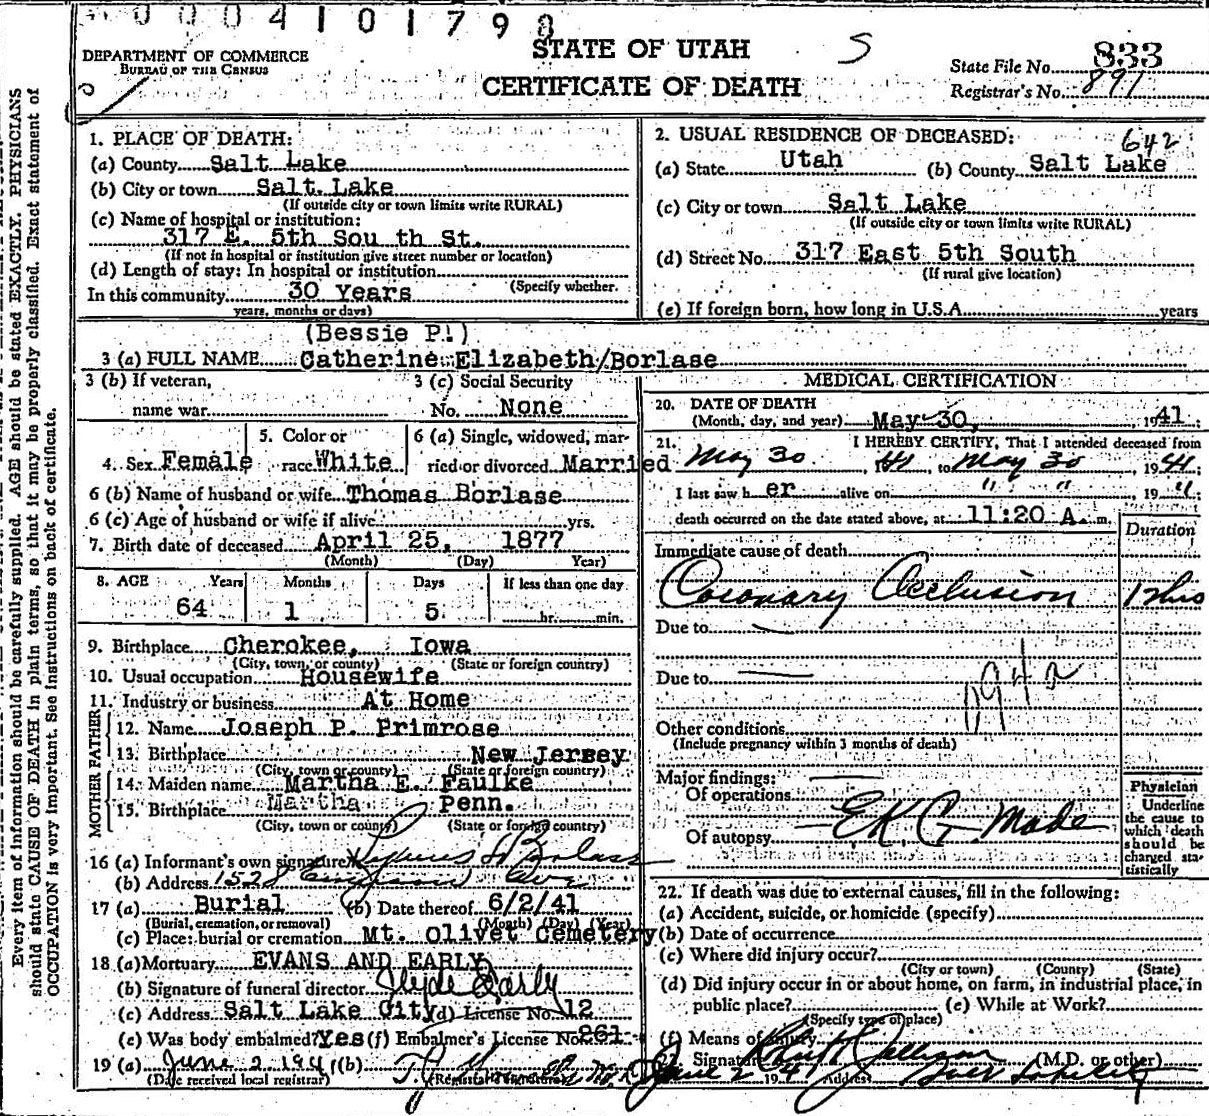 0004101790
STATE OF UTAH
CERTIFICATE OF DEATH
S
DEPARTMENT OF COMMERCE
BUREAU OF THE CENSUS
State File No. 833
Registrar's No. 891
Every item of information should be carefully supplied. AGE should be stated EXACTLY. PHYSICIANS
should state CAUSE OF DEATH in plain terms, so that it may be properly classified. Exact statement of
OCCUPATION is very important. See instructions on back of certificate.
1. PLACE OF DEATH:
(a) County Salt Lake
(b) City or town Salt Lake
(If outside city or town limits write RURAL)
(c) Name of hospital or institution:
317 E. 5th Sou th St.
(If not in hospital or institution give street number or location)
(d) Length of stay: In hospital or institution
(Specify whether.
In this community 30 Years
years, months or days)
2. USUAL RESIDENCE OF DECEASED:
642
(a) State Utah (b) County Salt Lake
(c) City or town Salt Lake
(If outside city or town limits write RURAL)
(d) Street No. 317 East 5th South
(If rural give location)
(e) If foreign born, how long in U.S.A. years
(Bessie P.)
3 (a) FULL NAME Catherine Elizabeth/Borlase
3 (b) If veteran,
name war
3 (c) Social Security
No. None
4. Sex Female
5. Color or
race White
6 (a) Single, widowed, mar-
ried or divorced Married
6 (b) Name of husband or wife Thomas Borlase
6 (c) Age of husband or wife if alive yrs.
7. Birth date of deceased April 25, 1877
(Month) (Day) Year)
8. AGE Years Months Days If less than one day
64 1 5 hr. min.
9. Birthplace Cherokee, Iowa
(City, town, or county) (State or foreign country)
10. Usual occupation Housewife
11. Industry or business At Home
FATHER
12. Name Joseph P. Primrose
13. Birthplace New Jersey
(City, town or county) (State or foreign country)
MOTHER
14. Maiden name Martha E. Faulke
15. Birthplace Martha Penn.
(City, town or county) (State or foreign country)
16 (a) Informant's own signature
(b) Address 1528
17 (a) Burial (b) Date thereof 6/2/41
(Burial, cremation, or removal) (Month) (Day) (Year)
(c) Place: burial or cremation Mt. Olivet Cemetery
18 (a) Mortuary EVANS AND EARLY
(b) Signature of funeral director Clyde Early
(c) Address Salt Lake City (d) License No. 12
(e) Was body embalmed? Yes (f) Embalmer's License No. 261
19 (a) June 2 1941 (b)
(Date received local registrar) (Registrar's signature)
MEDICAL CERTIFICATION
20. DATE OF DEATH
(Month, day, and year) May 30, 1941
21. I HEREBY CERTIFY, That I attended deceased from
May 30 1941 to May 30, 1941
I last saw her alive on " ", 1941
death occurred on the date stated above, at 11:20 A. m.
Duration
Immediate cause of death
Coronary Occlusion 12 hrs
Due to
Due to
Other conditions
(Include pregnancy within 3 months of death)
Major findings:
Of operations
Of autopsy EKG Made
Physician
Underline
the cause to
which death
should be
charged sta-
tistically
22. If death was due to external causes, fill in the following:
(a) Accident, suicide, or homicide (specify)
(b) Date of occurrence
(c) Where did injury occur?
(City or town) (County) (State)
(d) Did injury occur in or about home, on farm, in industrial place, in
public place? (e) While at Work?
(Specify type of place)
(f) Means of injury
23. Signature (M.D. or other)
June 2 1941 Address